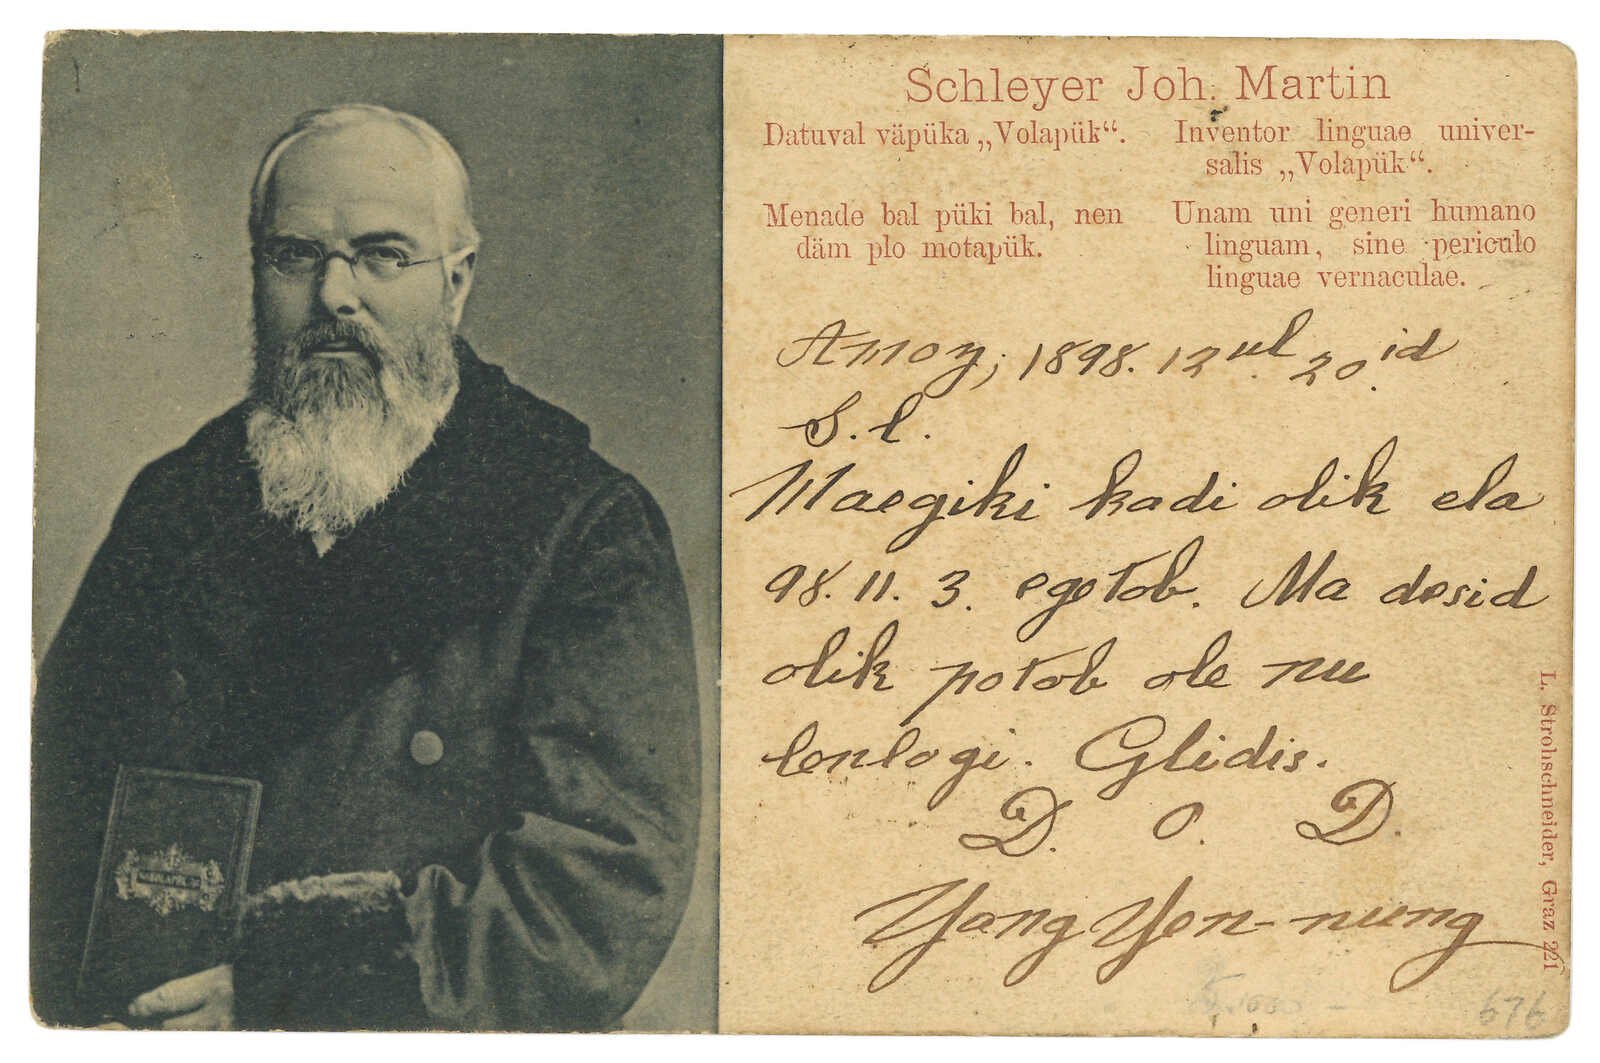 Schleyer Joh. Martin
Datuval väpüka „Volapük“.
Inventor linguae univer-
salis „Volapük“.
Menade bal püki bal, nen
däm plo motapük.
Unam uni generi humano
linguam, sine periculo
linguae vernaculae.
Amoy, 1898. 12ul. 20.id
S. l.
Maegiki kadi olik ela
98. 11. 3. egetob. Ma desid
olik potob ole nu
lenlogi. Glidis.
D. O. D.
Yang Yen-nung
L. Strohschneider, Graz 221
676